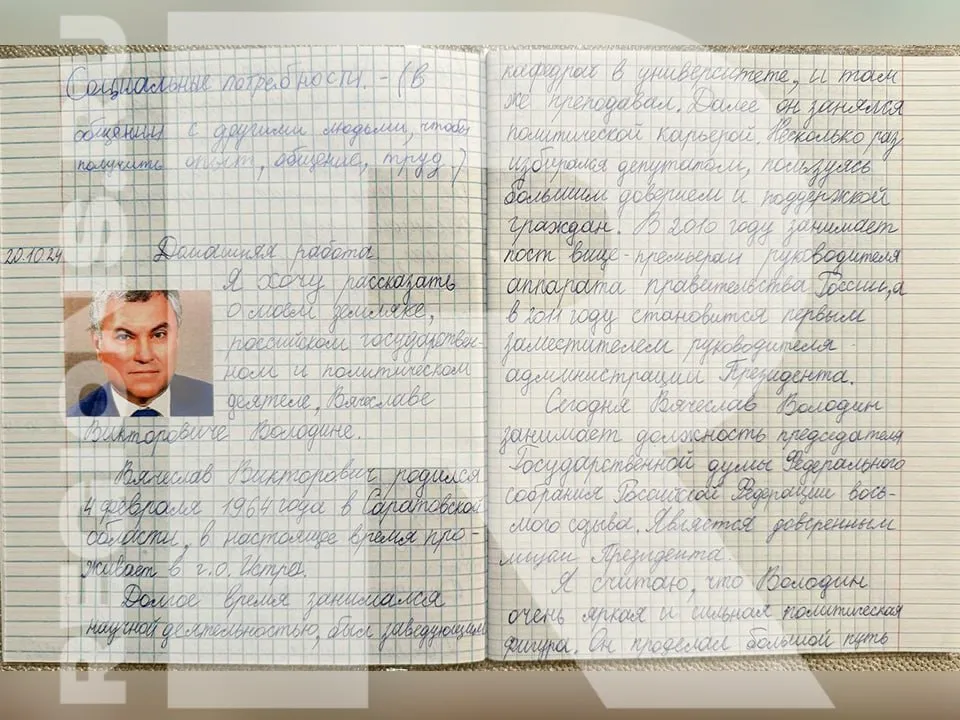 Социальные потребности. - (в
общении с другими людьми, чтобы
получить опыт, общение, труд)
20.10.24
Домашняя работа
Я хочу рассказать
о моем земляке,
российском государствен-
ном и политическом
деятеле, Вячеславе
Викторовиче Володине.
Вячеслав Викторович родился
4 февраля 1964 года в Саратовской
области, в настоящее время про-
живает в г.о. Истра.
Долгое время занимался
научной деятельностью, был заведующим
кафедрой в университете, и там
же преподавал. Далее он занялся
политической карьерой. Несколько раз
избирался депутатом, пользуясь
большим доверием и поддержкой
граждан. В 2010 году занимает
пост вице-премьера и руководителя
аппарата правительства России, а
в 2011 году становится первым
заместителем руководителя -
администрации Президента.
Сегодня Вячеслав Володин
занимает должность председателя
Государственной думы Федерального
собрания Российской Федерации вось-
мого созыва. Является доверенным
лицом Президента.
Я считаю, что Володин
очень яркая и сильная политическая
фигура. Он проделал большой путь